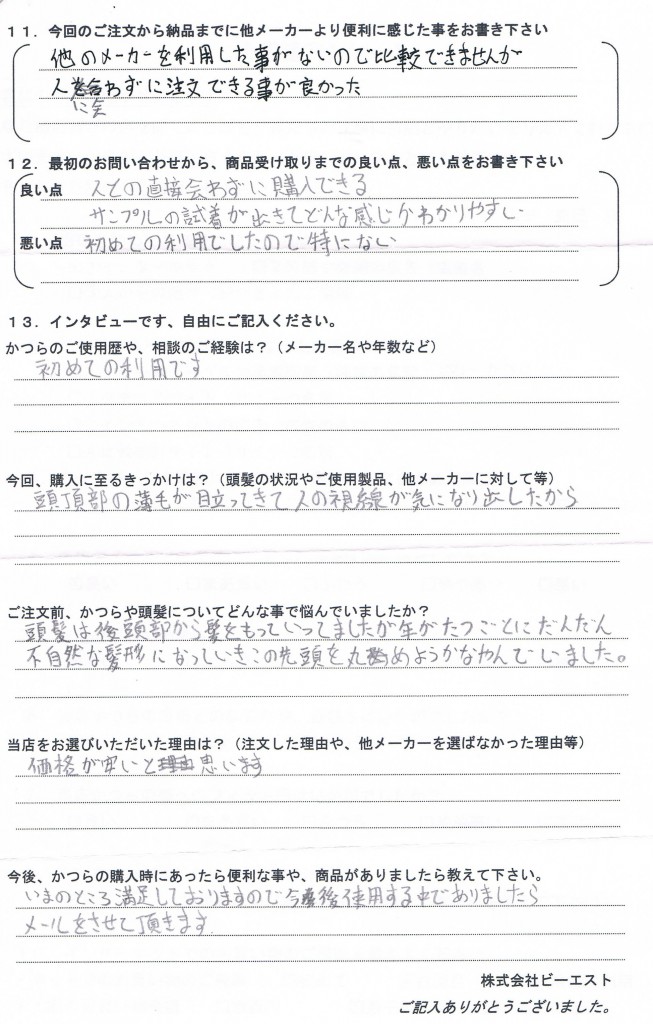 11．今回のご注文から納品までに他メーカーより便利に感じた事をお書き下さい
他のメーカーを利用した事がないので比較できませんが
人に会わずに注文できる事が良かった
12．最初のお問い合わせから、商品受け取りまでの良い点、悪い点をお書き下さい
良い点 人との直接会わずに購入できる
サンプルの試着が出きてどんな感じかわかりやすい
悪い点 初めての利用でしたので特にない
13．インタビューです、自由にご記入ください。
かつらのご使用歴や、相談のご経験は？（メーカー名や年数など）
初めての利用です
今回、購入に至るきっかけは？（頭髪の状況やご使用製品、他メーカーに対して等）
頭頂部の薄毛が目立ってきて人の視線が気になり出したから
ご注文前、かつらや頭髪についてどんな事で悩んでいましたか？
頭髪は後頭部から髪をもっていってましたが年がたつごとにだんだん
不自然な髪形になっていきこの先頭を丸めようかなやんでいました。
当店をお選びいただいた理由は？（注文した理由や、他メーカーを選ばなかった理由等）
価格が安いと思います
今後、かつらの購入時にあったら便利な事や、商品がありましたら教えて下さい。
いまのところ満足しておりますので今後使用する中でありましたら
メールをさせて頂きます
株式会社ビーエスト
ご記入ありがとうございました。